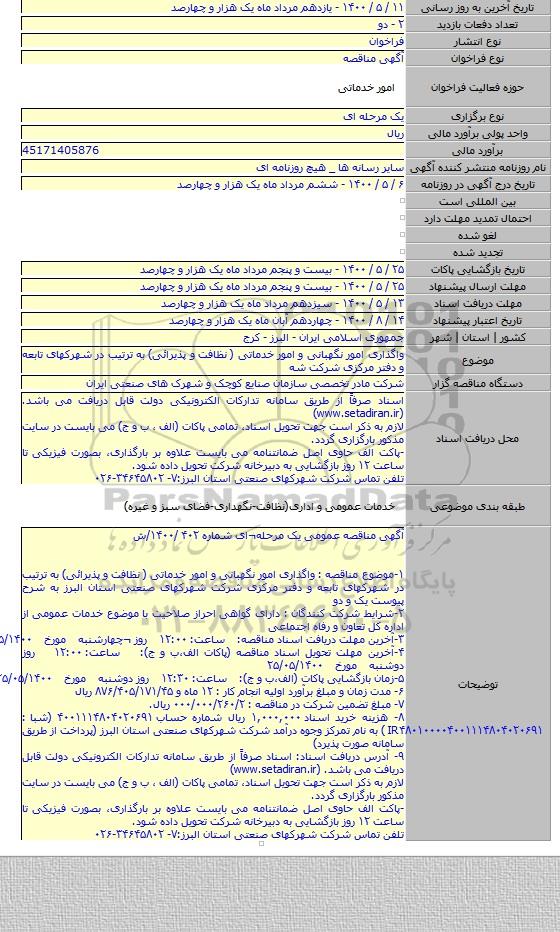 تاریخ آخرین به روز رسانی ۱۱ / ۵ / ۱۴۰۰ - یازدهم مرداد ماه یک هزار و چهارصد
تعداد دفعات بازدید ۲ - دو
نوع انتشار فراخوان
نوع فراخوان آگهی مناقصه
حوزه فعالیت فراخوان امور خدماتی
نوع برگزاری یک مرحله ای
واحد پولی برآورد مالی ریال
برآورد مالی 45171405876
نام روزنامه منتشر کننده آگهی سایر رسانه ها _ هیچ روزنامه ای
تاریخ درج آگهی در روزنامه ۶ / ۵ / ۱۴۰۰ - ششم مرداد ماه یک هزار و چهارصد
بین المللی است
احتمال تمدید مهلت دارد
لغو شده
تجدید شده
تاریخ بازگشایی پاکات ۲۵ / ۵ / ۱۴۰۰ - بیست و پنجم مرداد ماه یک هزار و چهارصد
مهلت ارسال پیشنهاد ۲۵ / ۵ / ۱۴۰۰ - بیست و پنجم مرداد ماه یک هزار و چهارصد
مهلت دریافت اسناد ۱۳ / ۵ / ۱۴۰۰ - سیزدهم مرداد ماه یک هزار و چهارصد
تاریخ اعتبار پیشنهاد ۱۴ / ۸ / ۱۴۰۰ - چهاردهم آبان ماه یک هزار و چهارصد
کشور | استان | شهر جمهوری اسلامی ایران - البرز - کرج
موضوع واگذاری امور نگهبانی و امور خدماتی ( نظافت و پذیرائی) به ترتیب در شهرکهای تابعه
و دفتر مرکزی شرکت شه
دستگاه مناقصه گزار شرکت مادر تخصصی سازمان صنایع کوچک و شهرک های صنعتی ایران
محل دریافت اسناد
اسناد صرفاً از طریق سامانه تدارکات الکترونیکی دولت قابل دریافت می باشد.
(www.setadiran.ir)
لازم به ذکر است جهت تحویل اسناد، تمامی پاکات (الف ، ب و ج) می بایست در سایت
مذکور بارگزاری گردد.
-پاکت الف حاوی اصل ضمانتنامه می بایست علاوه بر بارگذاری، بصورت فیزیکی تا
ساعت ۱۲ روز بازگشایی به دبیرخانه شرکت تحویل داده شود.
تلفن تماس شرکت شهرکهای صنعتی استان البرز:۷- ۳۴۶۴۵۸۰۲-۰۲۶
طبقه بندی موضوعی خدمات عمومی و اداری(نظافت-نگهداری-فضای سبز و غیره)
ParsNamadData
توضیحات
آگهی مناقصه عمومی یک مرحله¬ای شماره ۴۰۲ /۱۴۰۰/ش
۱-موضوع مناقصه : واگذاری امور نگهبانی و امور خدماتی ( نظافت و پذیرائی) به ترتیب
در شهرکهای تابعه و دفتر مرکزی شرکت شهرکهای صنعتی استان البرز به شرح
پیوست یک و دو
۲-شرایط شرکت کنندگان : دارای گواهی احراز صلاحیت با موضوع خدمات عمومی از
اداره کل تعاون و رفاه اجتماعی
۳-آخرین مهلت دریافت اسناد مناقصه: ساعت: ۱۲:۰۰ روز ¬چهارشنبه مورخ ۵/۱۴۰۰
۴-آخرین مهلت تحویل اسناد مناقصه (پاکات الف،ب و ج): ساعت: ۱۲:۰۰ روز
دوشنبه مورخ ۲۵/۰۵/۱۴۰۰
۵-زمان بازگشایی پاکات (الف،ب و ج): ساعت: ۱۲:۳۰ روز دوشنبه مورخ ۲۵/۰۵/۱۴۰۰
۶- مدت زمان و مبلغ برآورد اولیه انجام کار : ۱۲ ماه و ۸۷۶/۴۰۵/۱۷۱/۴۵ ریال
۷- مبلغ تضمین شرکت در مناقصه : ۰۰۰/۰۰۰/۲۶۰/۲ ریال.
۸- هزینه خرید اسناد ۱,۰۰۰,۰۰۰ ریال شماره حساب ۴۰۰۱۱۱۴۸۰۴۰۲۰۶۹۱ (شبا :
IR۴۸۰۱۰۰۰۰۴۰۰۱۱۱۴۸۰۴۰۲۰۶۹۱ ) به نام تمرکز وجوه درآمد شرکت شهرکهای صنعتی استان البرز (پرداخت از طریق
سامانه صورت پذیرد)
۹- آدرس دریافت اسناد: اسناد صرفاً از طریق سامانه تدارکات الکترونیکی دولت قابل
دریافت می باشد. (www.setadiran.ir)
لازم به ذکر است جهت تحویل اسناد، تمامی پاکات (الف ، ب و ج) می بایست در سایت
مذکور بارگزاری گردد.
-پاکت الف حاوی اصل ضمانتنامه می بایست علاوه بر بارگذاری، بصورت فیزیکی تا
ساعت ۱۲ روز بازگشایی به دبیرخانه شرکت تحویل داده شود.
تلفن تماس شرکت شهرکهای صنعتی استان البرز:۷- ۳۴۶۴۵۸۰۲-۰۲۶